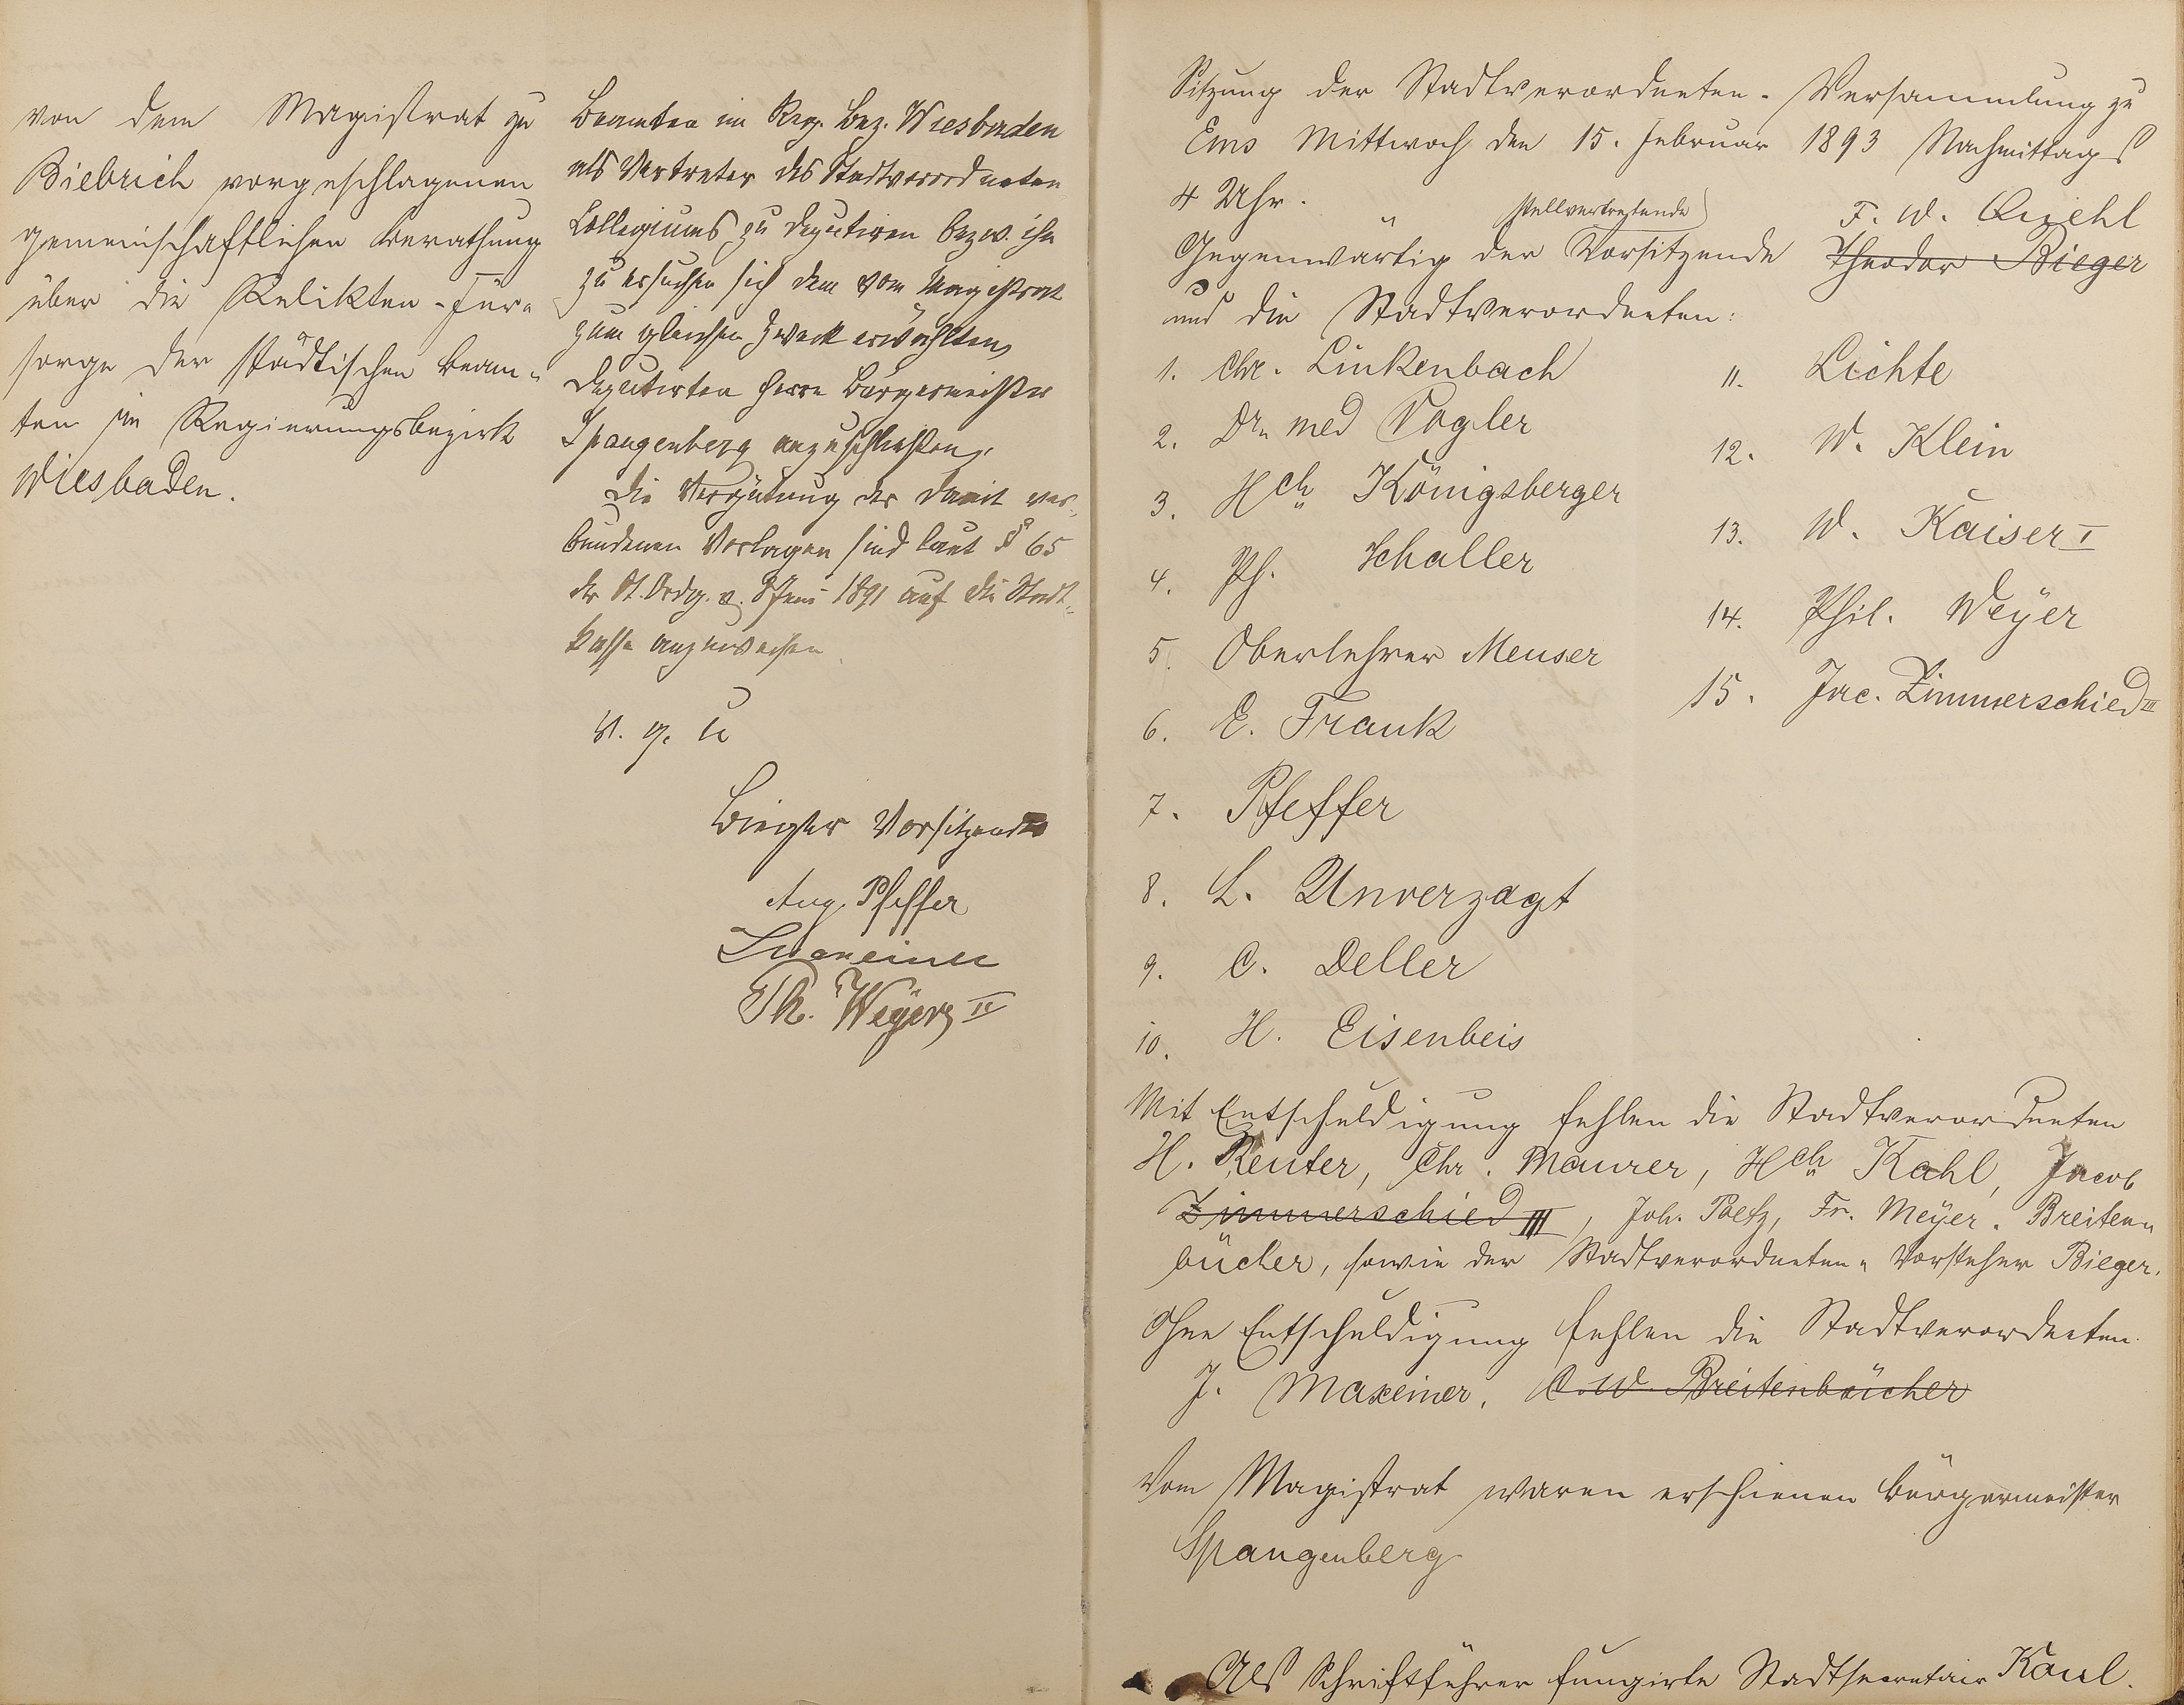 von dem Magistrat zu
Biebrich vorgeschlagenen
gemeinschaftlichen Berathung
über die Relikten-Für-
sorge der städtischen Beam-
ten im Regierungsbezirk
Wiesbaden.
Beamten im Reg. Bez. Wiesbaden
als Vertreter des Stadtverordneten
Collegiums zu deputiren bezw. ihn
zu ersuchen sich dem vom Magistrat
zum gleichen Zweck erwählten
Deputirten Herrn Bürgermeister
Spangenberg anzuschließen.
Die Vergütung der damit ver-
bundenen Verlagen sind laut § 65
der St. Ordg. v. 8 Juni 1891 auf die Stadt-
kasse anzuweisen.
v. g. u
Bieger Vorsitzender
Aug. Pfeffer
Ph. Weyer II
Sitzung der Stadtverordneten-Versammlung zu
Ems Mittwoch den 15. Februar 1893 Nachmittags
4 Uhr.
stellvertretende F. W. Quehl
Gegenwärtig der Vorsitzende Theodor Bieger
und die Stadtverordneten:
1. Chr. Linkenbach
2. Dr. med Vogler
3. Hch Königsberger
4. Ph. Schaller
5. Oberlehrer Meuser
6. E. Frank
7. Pfeffer
8. L. Unverzagt
9. C. Deller
10. H. Eisenbeis
11. Lichte
12. W. Klein
13. W. Kaiser I
14. Phil. Weyer
15. Jac. Zimmerschied III
Mit Entschuldigung fehlen die Stadtverordneten
H. Reuter, Chr. Maurer, Hch Kahl, Jacob
Zimmerschied III, Joh. Paetz, Fr. Meyer. Breiten-
bücher, sowie der Stadtverordneten-Vorsteher Bieger.
Ohne Entschuldigung fehlen die Stadtverordneten
J. Maxeiner, C. W. Breitenbücher
Vom Magistrat waren erschienen Bürgermeister
Spangenberg
Als Schriftführer fungirte Stadtsecretair Kaul.